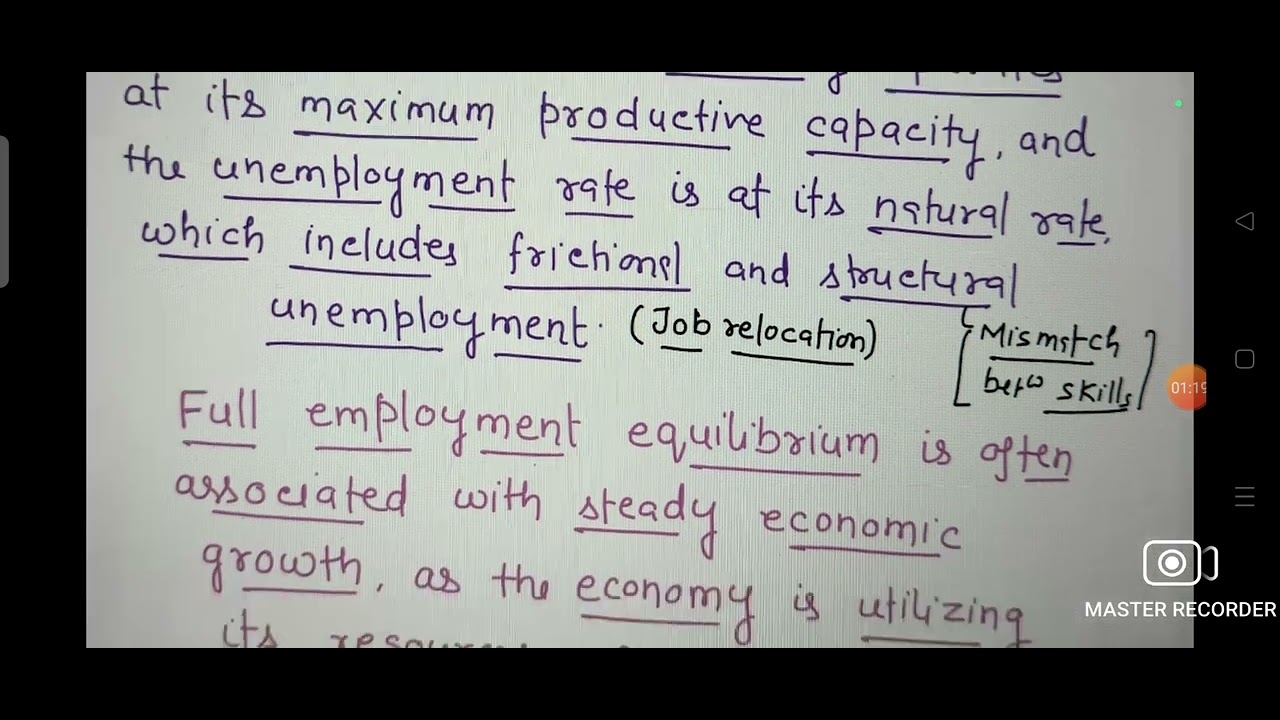 at its maximum productive capacity, and
the unemployment rate is at its natural rate,
which includes frictional and structural
unemployment. (Job relocation)
[Mismatch
betw skills]
Full employment equilibrium is often
associated with steady economic
growth, as the economy is utilizing
its
01:19
MASTER RECORDER